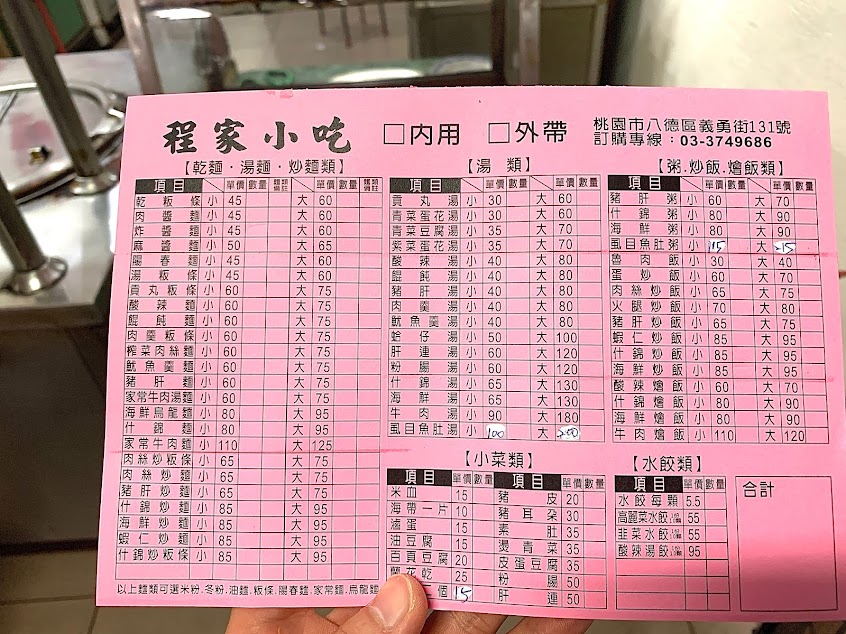 程家小吃 □內用 □外帶
桃園市八德區義勇街131號
訂購專線：03-3749686
【乾麵．湯麵．炒麵類】
項目 單價 數量 單價 數量
乾粄條 小 45 大 60
肉醬麵 小 45 大 60
炸醬麵 小 45 大 60
麻醬麵 小 50 大 65
陽春麵 小 45 大 60
湯粄條 小 45 大 60
貢丸粄條 小 60 大 75
酸辣麵 小 60 大 75
餛飩麵 小 60 大 75
肉羹粄條 小 60 大 75
榨菜肉絲麵 小 60 大 75
魷魚羹麵 小 60 大 75
豬肝麵 小 60 大 75
家常牛肉湯麵 小 60 大 75
海鮮烏龍麵 小 80 大 95
什錦麵 小 80 大 95
家常牛肉麵 小 110 大 125
肉絲炒粄條 小 65 大 75
肉絲炒麵 小 65 大 75
豬肝炒麵 小 65 大 75
什錦炒麵 小 85 大 95
海鮮炒麵 小 85 大 95
蝦仁炒麵 小 85 大 95
什錦炒粄條 小 85 大 95
以上麵類可選米粉.冬粉.油麵.粄條.陽春麵.家常麵.烏龍麵
【湯類】
項目 單價 數量 單價 數量
貢丸湯 小 30 大 60
青菜蛋花湯 小 30 大 60
青菜豆腐湯 小 35 大 70
紫菜蛋花湯 小 35 大 70
酸辣湯 小 40 大 80
餛飩湯 小 40 大 80
豬肝湯 小 40 大 80
肉羹湯 小 40 大 80
魷魚羹湯 小 40 大 80
蛤仔湯 小 50 大 100
肝連湯 小 60 大 120
粉腸湯 小 60 大 120
什錦湯 小 65 大 130
海鮮湯 小 65 大 130
牛肉湯 小 90 大 180
虱目魚肚湯 小 100 大 200
【粥.炒飯.燴飯類】
項目 單價 數量 單價 數量
豬肝粥 小 60 大 70
什錦粥 小 80 大 90
海鮮粥 小 80 大 90
虱目魚肚粥 小 大
魯肉飯 小 30 大 40
蛋炒飯 小 60 大 70
肉絲炒飯 小 65 大 75
火腿炒飯 小 70 大 80
豬肝炒飯 小 65 大 75
蝦仁炒飯 小 85 大 95
什錦炒飯 小 85 大 95
海鮮炒飯 小 85 大 95
酸辣燴飯 小 60 大 70
什錦燴飯 小 80 大 90
海鮮燴飯 小 80 大 90
牛肉燴飯 小 110 大 120
【小菜類】
項目 單價 數量 項目 單價 數量
米血 15 豬皮 20
海帶一片 10 豬耳朵 30
滷蛋 15 素肚 35
油豆腐 15 燙青菜 35
百頁豆腐 20 皮蛋豆腐 35
蘭花乾 25 粉腸 50
個 15 肝連 50
【水餃類】
項目 單價 數量
水餃每顆 5.5
高麗菜水餃 55
韭菜水餃 55
酸辣湯餃 95
合計